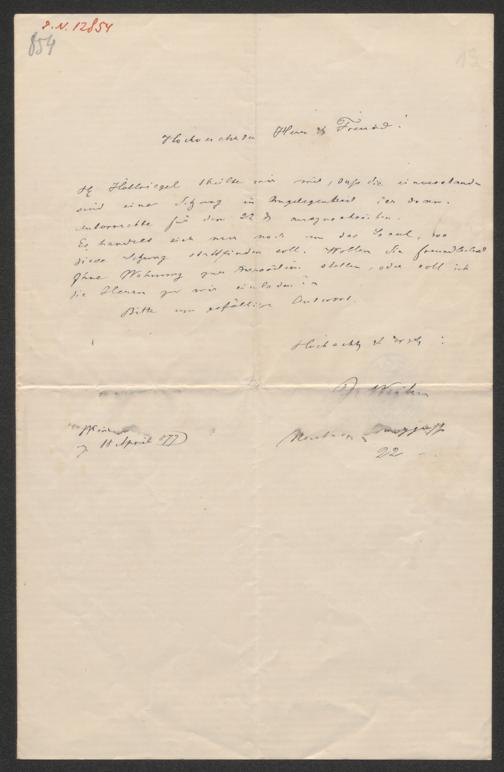 I. N. 12854
854
15
Hochverehrter Herr & Freund!
Hr Hallriegel theilte mir mit, daß Sie einverstanden
sind einer Sitzung in Angelegenheit der dram.
Autorrechte für den 22 d auszuschreiben.
Es handelt sich nur noch um das Local, wo
diese Sitzung stattfinden soll. Wollen Sie freundlichst
Ihre Wohnung zur stellen, oder soll ich
die Herren zu mir einladen?
Bitte um gefällige Antwort.
Hochachtg & ergb:
Dr
Wien
18 April
22